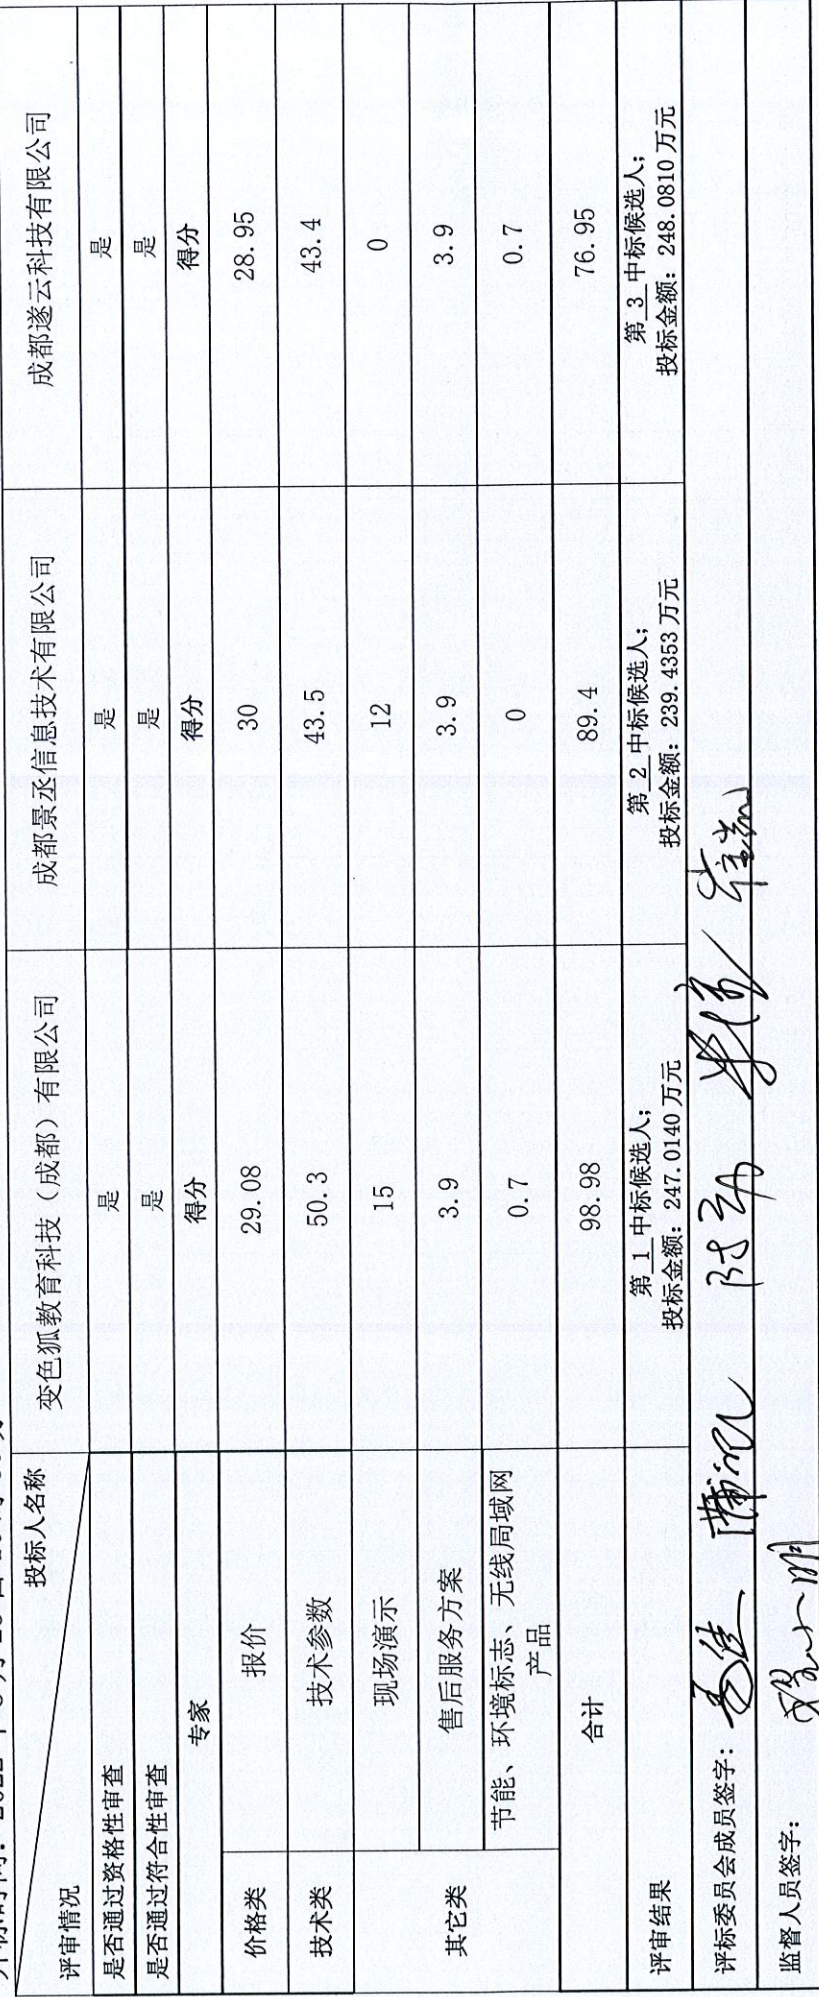 投标人名称
评审情况
变色狐教育科技（成都）有限公司
成都景丞信息技术有限公司
成都遂云科技有限公司
是否通过资格性审查 是 是 是
是否通过符合性审查 是 是 是
专家 得分 得分 得分
价格类 报价 29.08 30 28.95
技术类 技术参数 50.3 43.5 43.4
其它类 现场演示 15 12 0
售后服务方案 3.9 3.9 3.9
节能、环境标志、无线局域网
产品 0.7 0 0.7
合计 98.98 89.4 76.95
评审结果
第 1 中标候选人；
投标金额：247.0140 万元
第 2 中标候选人；
投标金额：239.4353 万元
第 3 中标候选人；
投标金额：248.0810 万元
评标委员会成员签字：
监督人员签字：